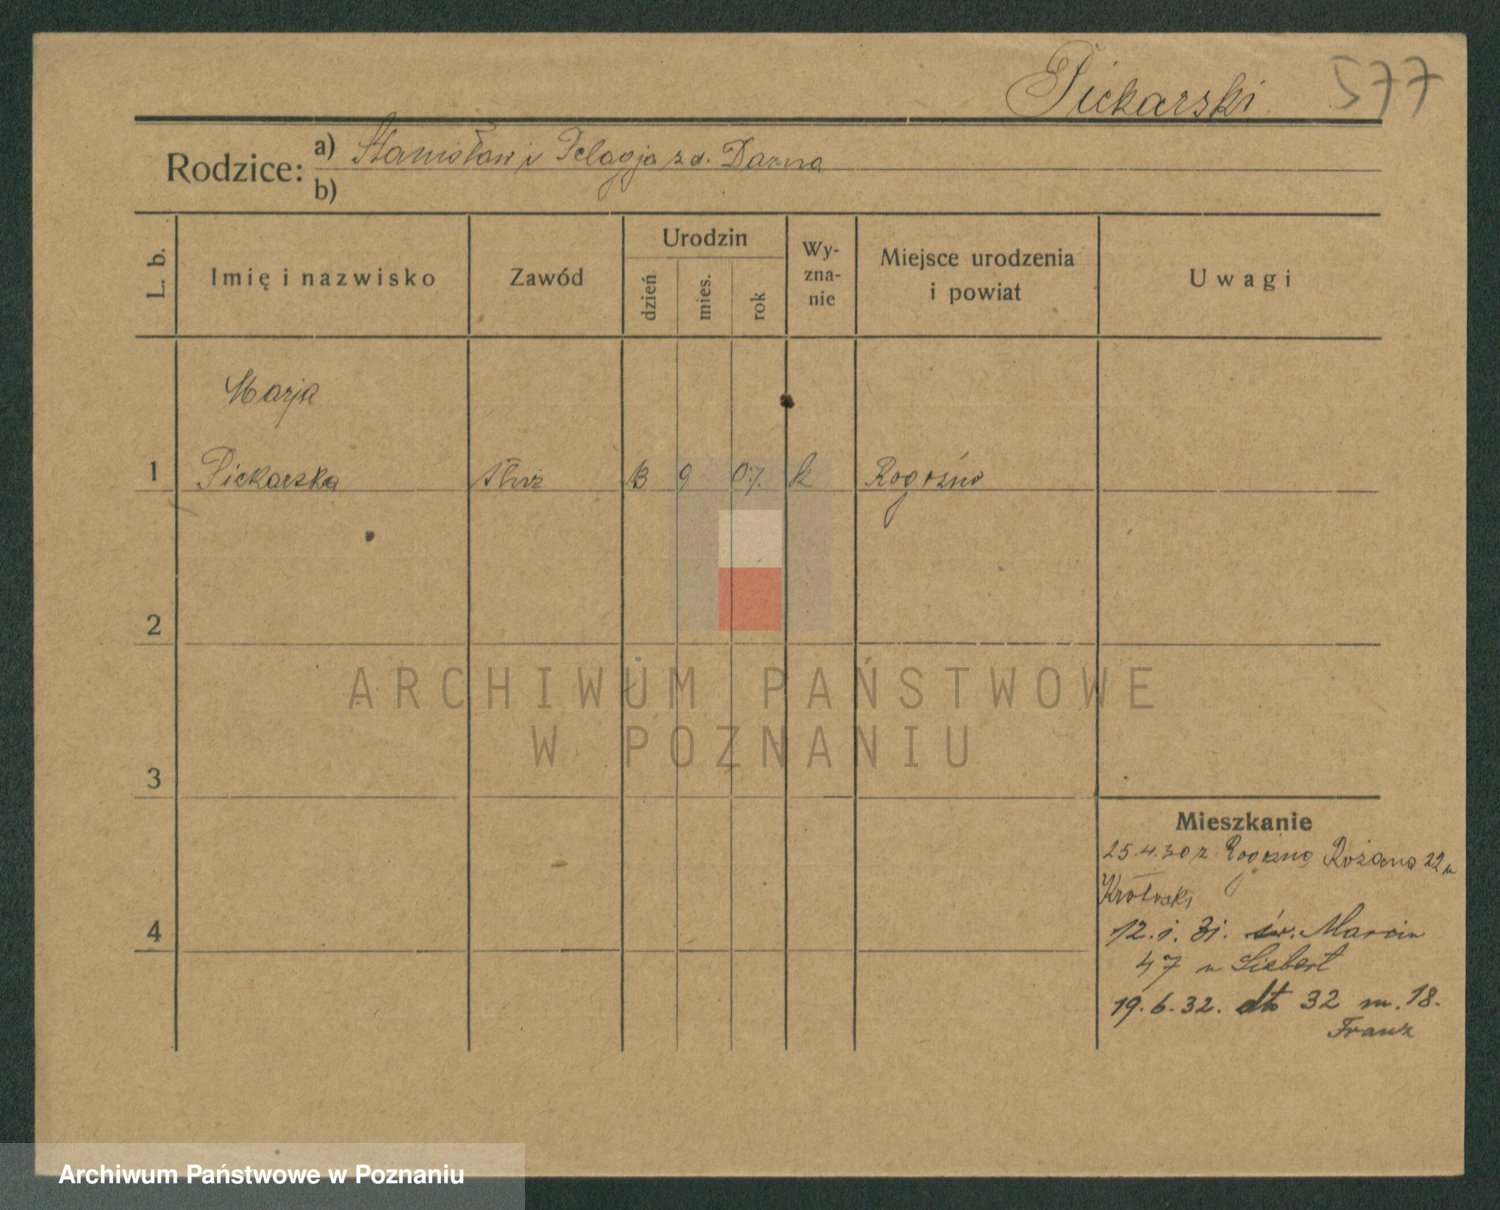 Piekarski 577
Rodzice: a) Stanisław i Pelagja zd.
b)
L. b. Imię i nazwisko Zawód Urodzin dzień mies. rok Wy-zna-nie Miejsce urodzenia i powiat Uwagi
Marja
1 Piekarska służ 13 9 07. k Rogoźno
2
3
4
Mieszkanie
25.4.30 z Rogoźna Różana 22 u
12.1.31. św. Marcin
47 u Siebert
19.6.32. dto 32 m. 18.
Franz
ARCHIWUM PAŃSTWOWE
W POZNANIU
Archiwum Państwowe w Poznaniu